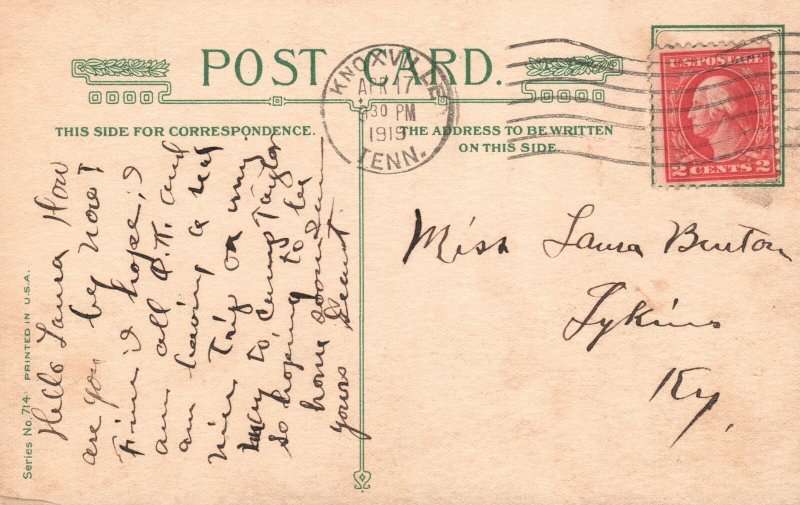 POST CARD.
KNOXVILLE
APR 17
30 PM
1919
TENN.
U.S. POSTAGE
2 CENTS 2
THIS SIDE FOR CORRESPONDENCE.
THE ADDRESS TO BE WRITTEN
ON THIS SIDE.
Hello Laura How
are you by now!
Fine I hope, I
am all O.K. and
am having a
nice Trip on my
way to, Camp Taylor
so hoping to be
home soon
yours
Miss Laura Burton
Tykins
Ky,
Series No. 714 PRINTED IN U.S.A.